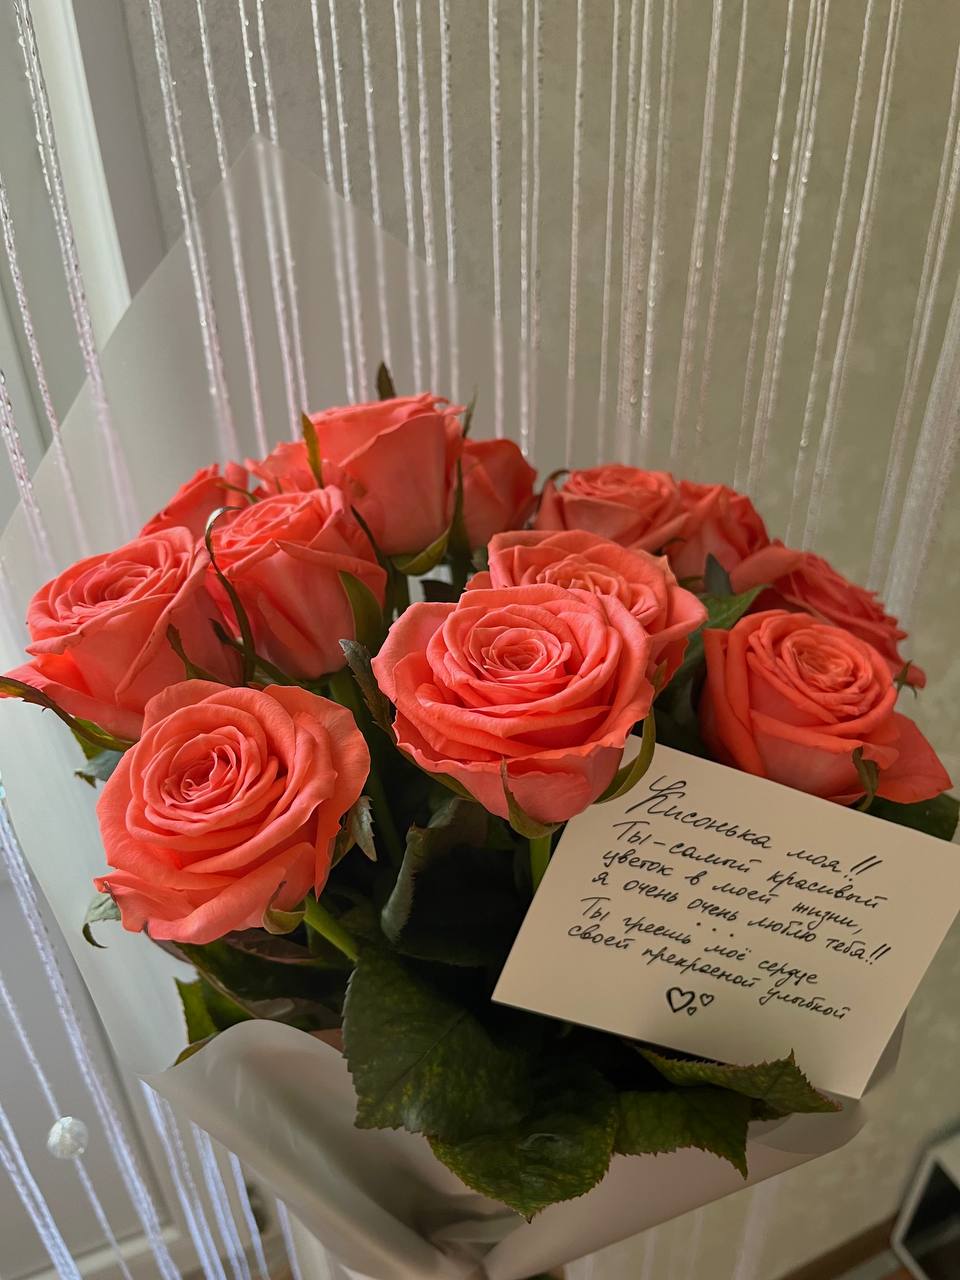 Кисонька моя!!
Ты - самый красивый
цветок в моей жизни,
я очень очень люблю тебя!!
...
Ты греешь моё сердце
своей прекрасной улыбкой